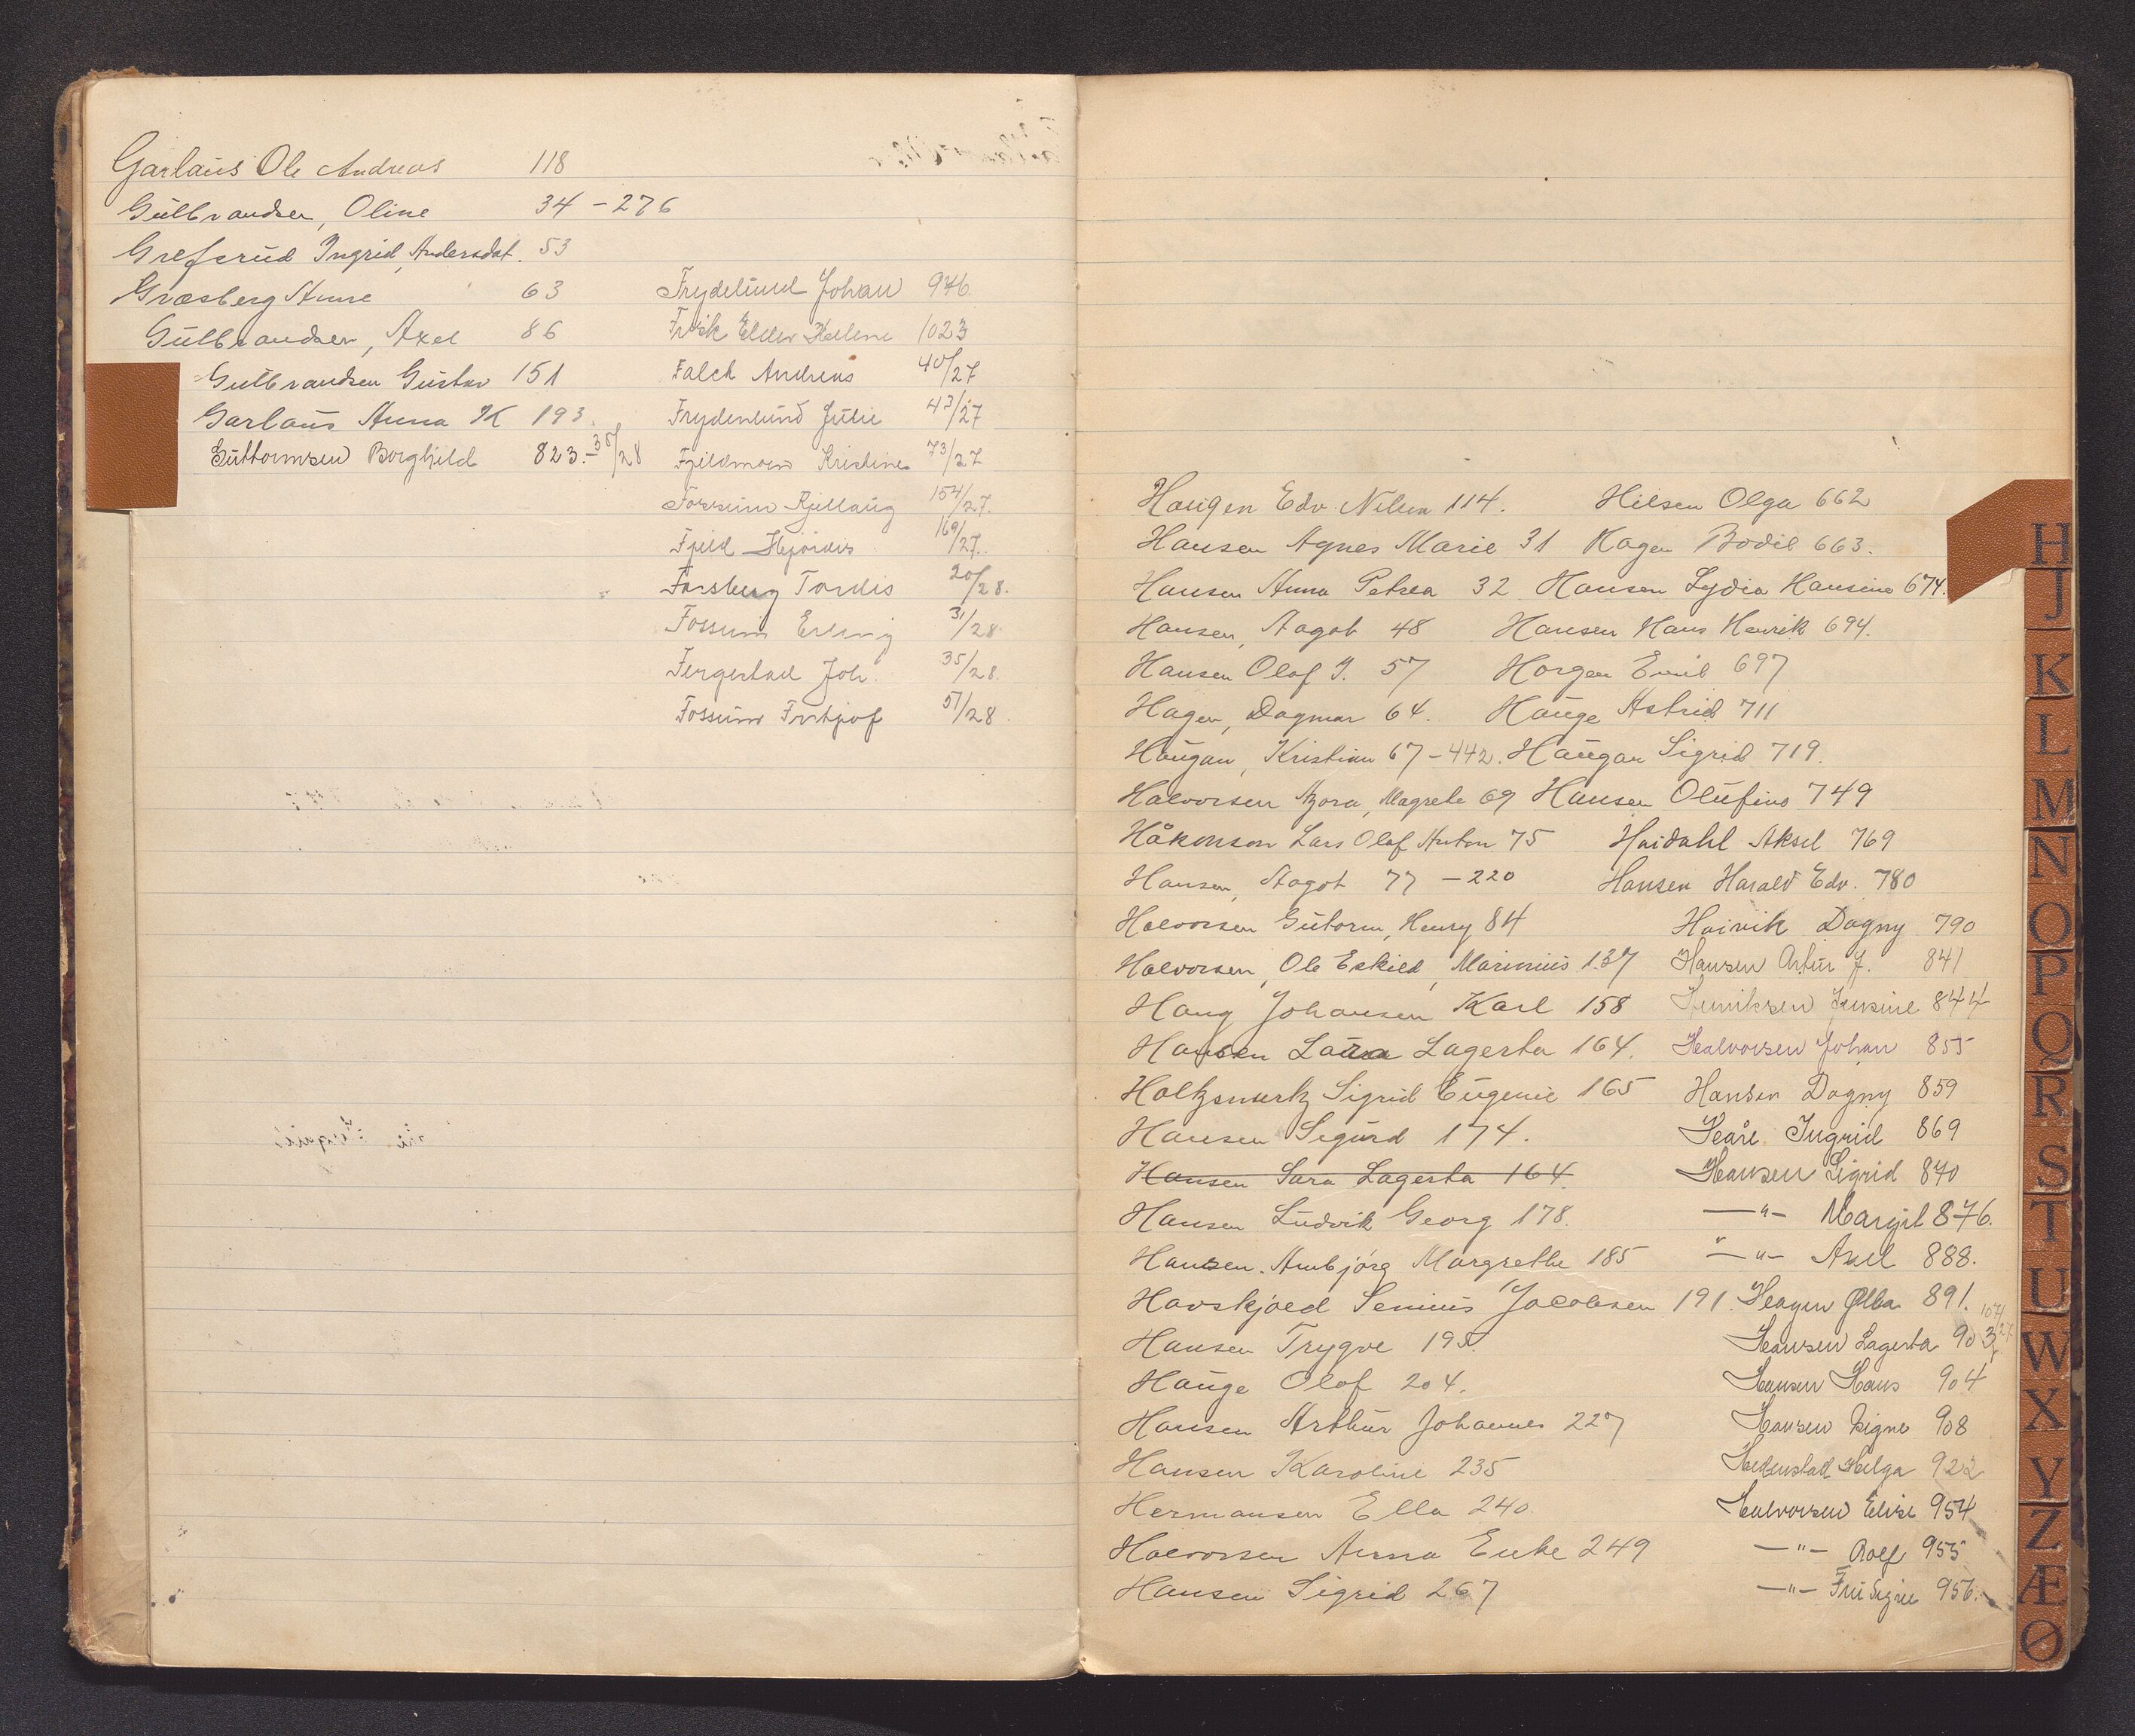 Garlaus Ole Andreas 118
Gulbrandsen, Oline 34 - 276
Grefsrud Ingrid, Andersdat. 53
Græsberg Anne 63
Gulbrandsen, Axel 86
Gulbrandsen Gustav 151
Garlaus Anna K 193.
Guttormsen Borghild 823.-38/28
Frydelund Johan 946
Frisk Ellen Hellene 1023
Falch Andreas 40/27
Frydenlund Julie 43/27
Fjeldmoen Kristine 73/27
Fossum Kjellaug 154/27.
Fjeld Hjørdis 169/27.
Forsberg Tordis 20/28.
Fossum Erling 31/28.
Fergestad Joh. 35/28.
Fossum Fritjof 57/28.
Haugen Edv. Nilsen 114.
Hansen Agnes Marie 31
Hansen Anna Petrea 32
Hansen, Aagot 48
Hansen Olaf J. 57
Hagen, Dagmar 64.
Haugan, Kristian 67-442.
Halvorsen Azora, Magrete 69
Håkonson Lars Olaf Anton 75
Hansen, Aagot 77 - 220
Halvorsen Gutorm, Henry 84
Halvorsen, Ole Eskild, Marinius 137
Haug Johansen Karl 158
Hansen Lara Lagerta 164.
Holtzmerk Sigrid Eugenie 165
Hansen Sigurd 174.
Hansen Sara Lagerta 164
Hansen Ludvik Georg 178.
Hansen. Ambjörg Margrethe 185
Havskjold Senius Jacobsen 191.
Hansen Trygve 195
Hauge Olaf 204.
Hansen Arthur Johannes 227
Hansen Karoline 235
Hermansen Ella 240.
Halvorsen Anna 249
Hansen Sigrid 267
Hilsen Olga 662
Hagen Bodil 663.
Hansen Lydia Hansine 674.
Hansen Hans Henrik 694.
Horgen Emil 697
Hauge Astrid 711
Haugan Sigrid 719.
Hansen Olufine 749
Haidahl Aksel 769
Hansen Harald Edv. 780
Hoivik Dagny 790
Hansen Artur J. 841
Henriksen Jensine 844
Halvorsen Johan 855
Hansen Dagny 859
Heåre Ingrid 869
Hansen Sigrid 870
—"— Margit 876.
—"— Axel 888.
Hagen 891.
Hansen Lagerta 903, 107/27
Hansen Hans 904
Hansen Signe 908
Hedenstad Helga 922
Halvorsen Elise 954
—"— Rolf 955
—"— Fru Signe 956.
H
J
K
L
M
N
O
P
Q
R
S
T
U
W
X
Y
Z
Æ
Ø